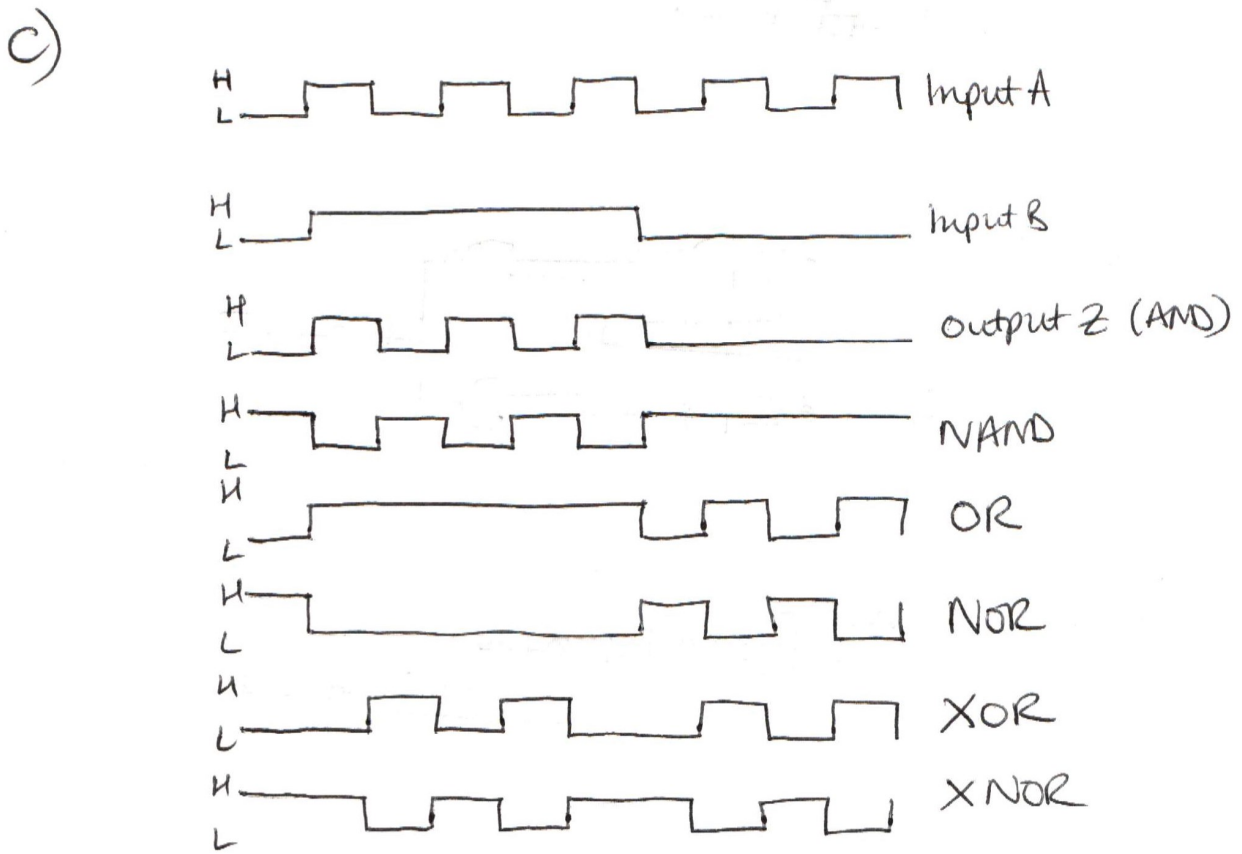 C)
H
L
Input A
H
L
Input B
H
L
output Z (AND)
H
L
NAND
H
L
OR
H
L
NOR
H
L
XOR
H
L
XNOR